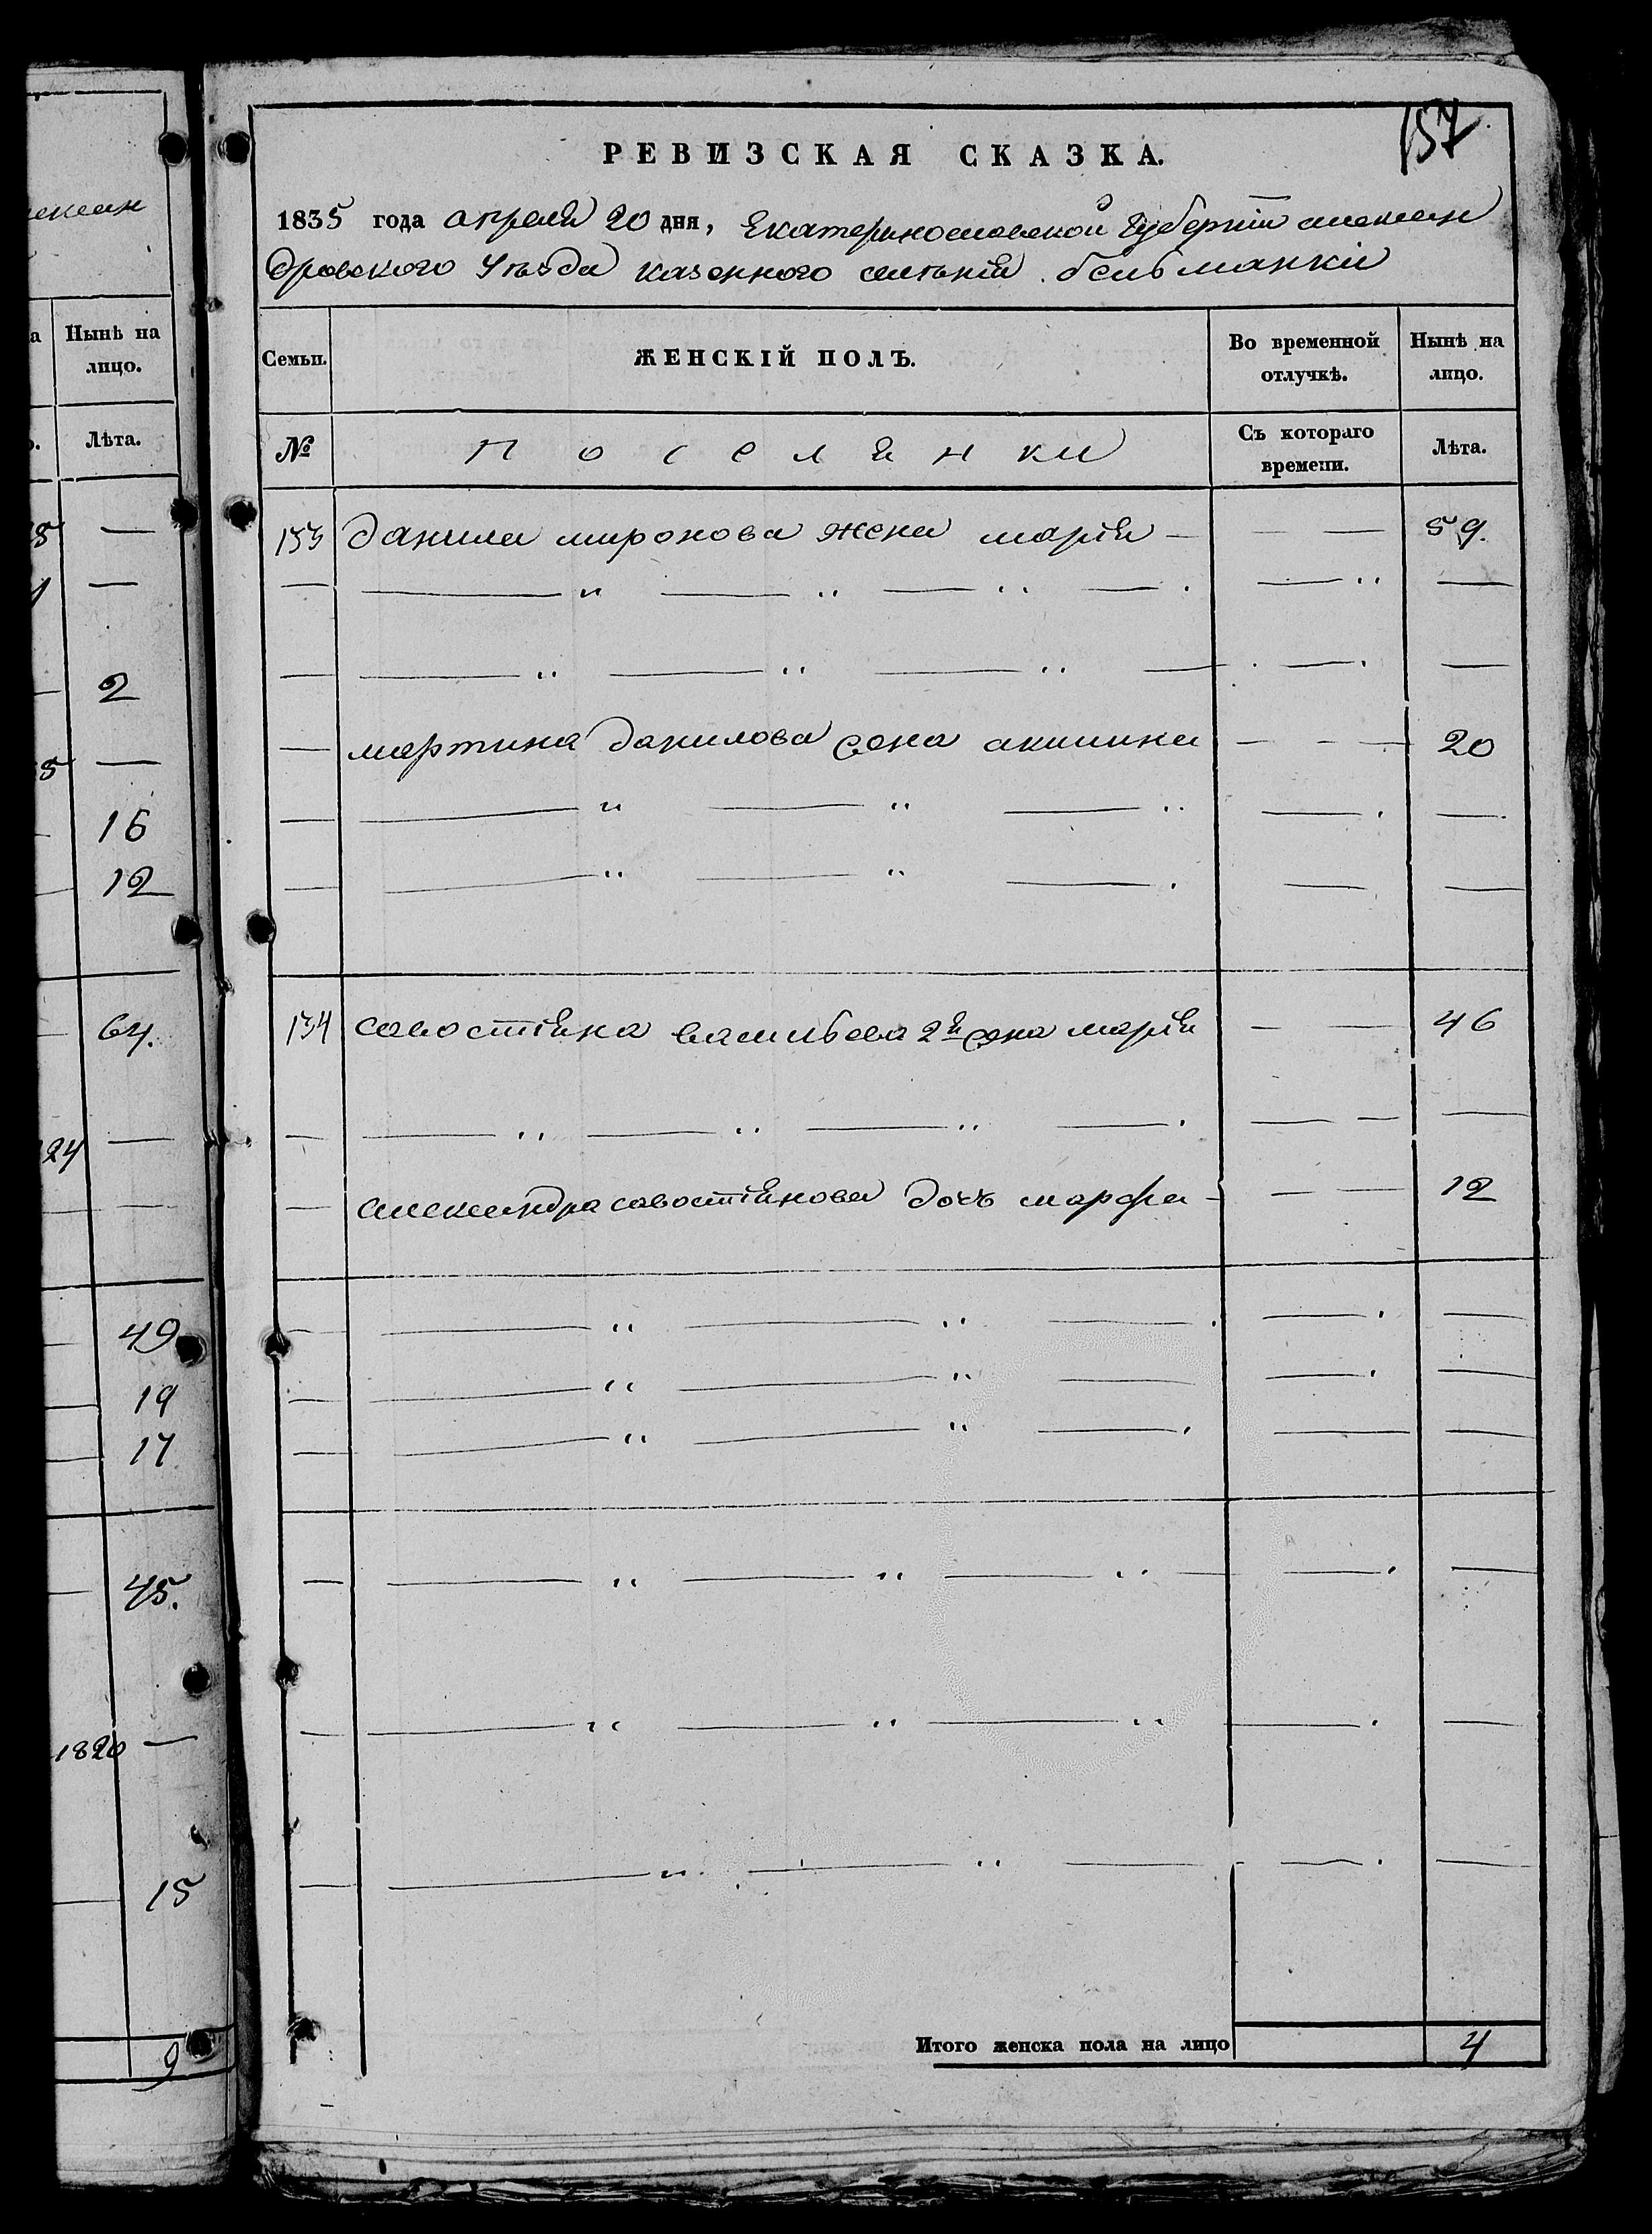 лександ
а Нынѣ на
лицо.
Лѣта.
2
16
12
64.
24
49
19
17
45.
1820
15
9
157
РЕВИЗСКАЯ СКАЗКА.
1835 года апреля 20 дня, Екатеринославской Губернiи александ
дровского Уѣзда казенного селѣнiя бельманки
Семьи. ЖЕНСКIЙ ПОЛЪ. Во временной отлучкѣ. Нынѣ на лицо.
№ Поселянки Съ котораго времени. Лѣта.
133 данила миронова жена марiя — — — 59.
— мартина данилова жена акилина — — — 20
134 савостiяна васильева 2я жена марiя — — 46
— александра савостiянова дочь марфа — — — 12
Итого женска пола на лицо 4